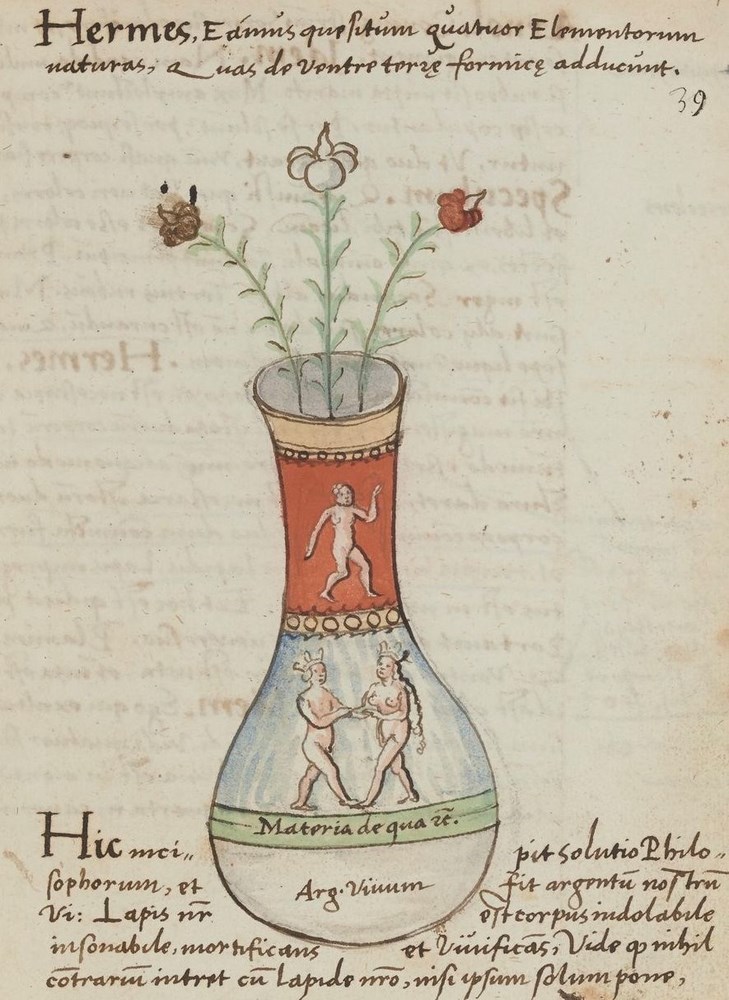 Hermes, Eámus quesitum quatuor Elementorium
naturas, Quas de ventre terrę formicę adducunt.
39
Materia de qua etc̃.
Arg. Vivum
Hic inci„ pit solutio Philo„
sophorum, et fit argentũ nostrũ
vi: Lapis nr̃ est corpus indolabile
insonabile, mortificans et vivificãs, Vide qp nihil
cõtrariũ intret cũ lapide nr̃o, nisi ipsum solum pone,